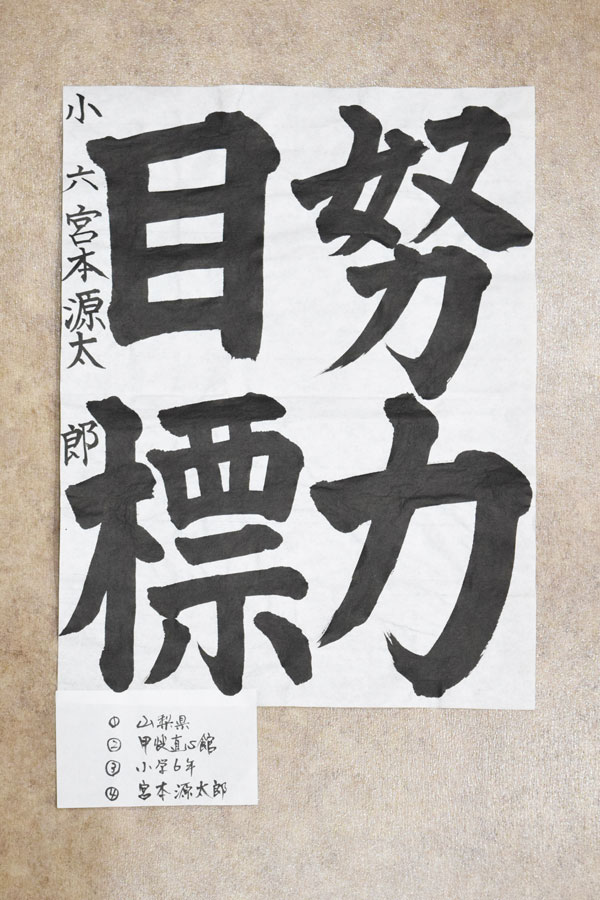 努力
目標
小六 宮本源太郎
① 山梨県
② 甲斐直心館
③ 小学6年
④ 宮本源太郎